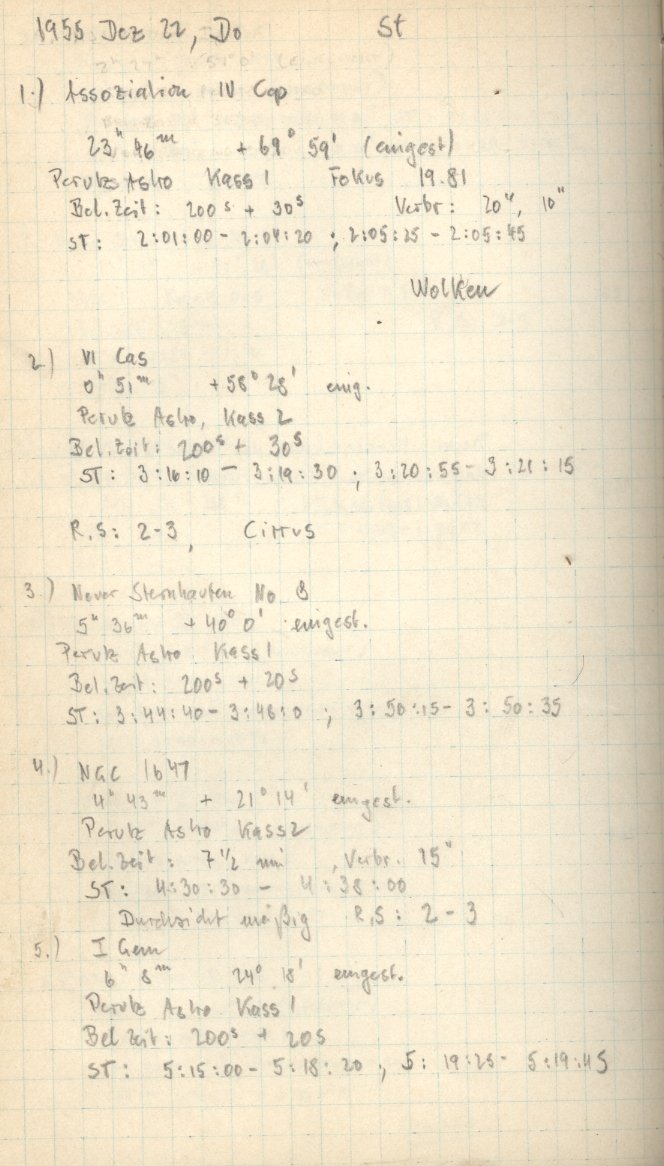 1955 Dez 22, Do St
1.) Assoziation IV Cep
23ʰ 46ᵐ + 69° 59' (eingest)
Perutz Astro Kass 1 Fokus 19.81
Bel. Zeit: 200ˢ + 30ˢ Verbr: 20", 10"
ST: 2:01:00 - 2:04:20 ; 2:05:25 - 2:05:45
Wolken
2.) VI Cas
0ʰ 51ᵐ + 58° 28' eing.
Perutz Astro, Kass 2
Bel. Zeit: 200ˢ + 30ˢ
ST: 3:16:10 - 3:19:30 ; 3:20:55 - 3:21:15
R.S: 2-3, Cirrus
3.) Neuer Sternhaufen No 8
5ʰ 36ᵐ + 40° 0' eingest.
Perutz Astro Kass 1
Bel. Zeit: 200ˢ + 20ˢ
ST: 3:44:40 - 3:48:0 ; 3:50:15 - 3:50:35
4.) NGC 1647
4ʰ 43ᵐ + 21° 14' eingest.
Perutz Astro Kass 2
Bel. Zeit: 7 1/2 min , Verbr. 15"
ST: 4:30:30 - 4:38:00
Durchsicht mäßig R.S: 2-3
5.) I Gem
6ʰ 8ᵐ 24° 18' eingest.
Perutz Astro Kass 1
Bel Zeit: 200ˢ + 20s
ST: 5:15:00 - 5:18:20 , 5:19:25 - 5:19:45